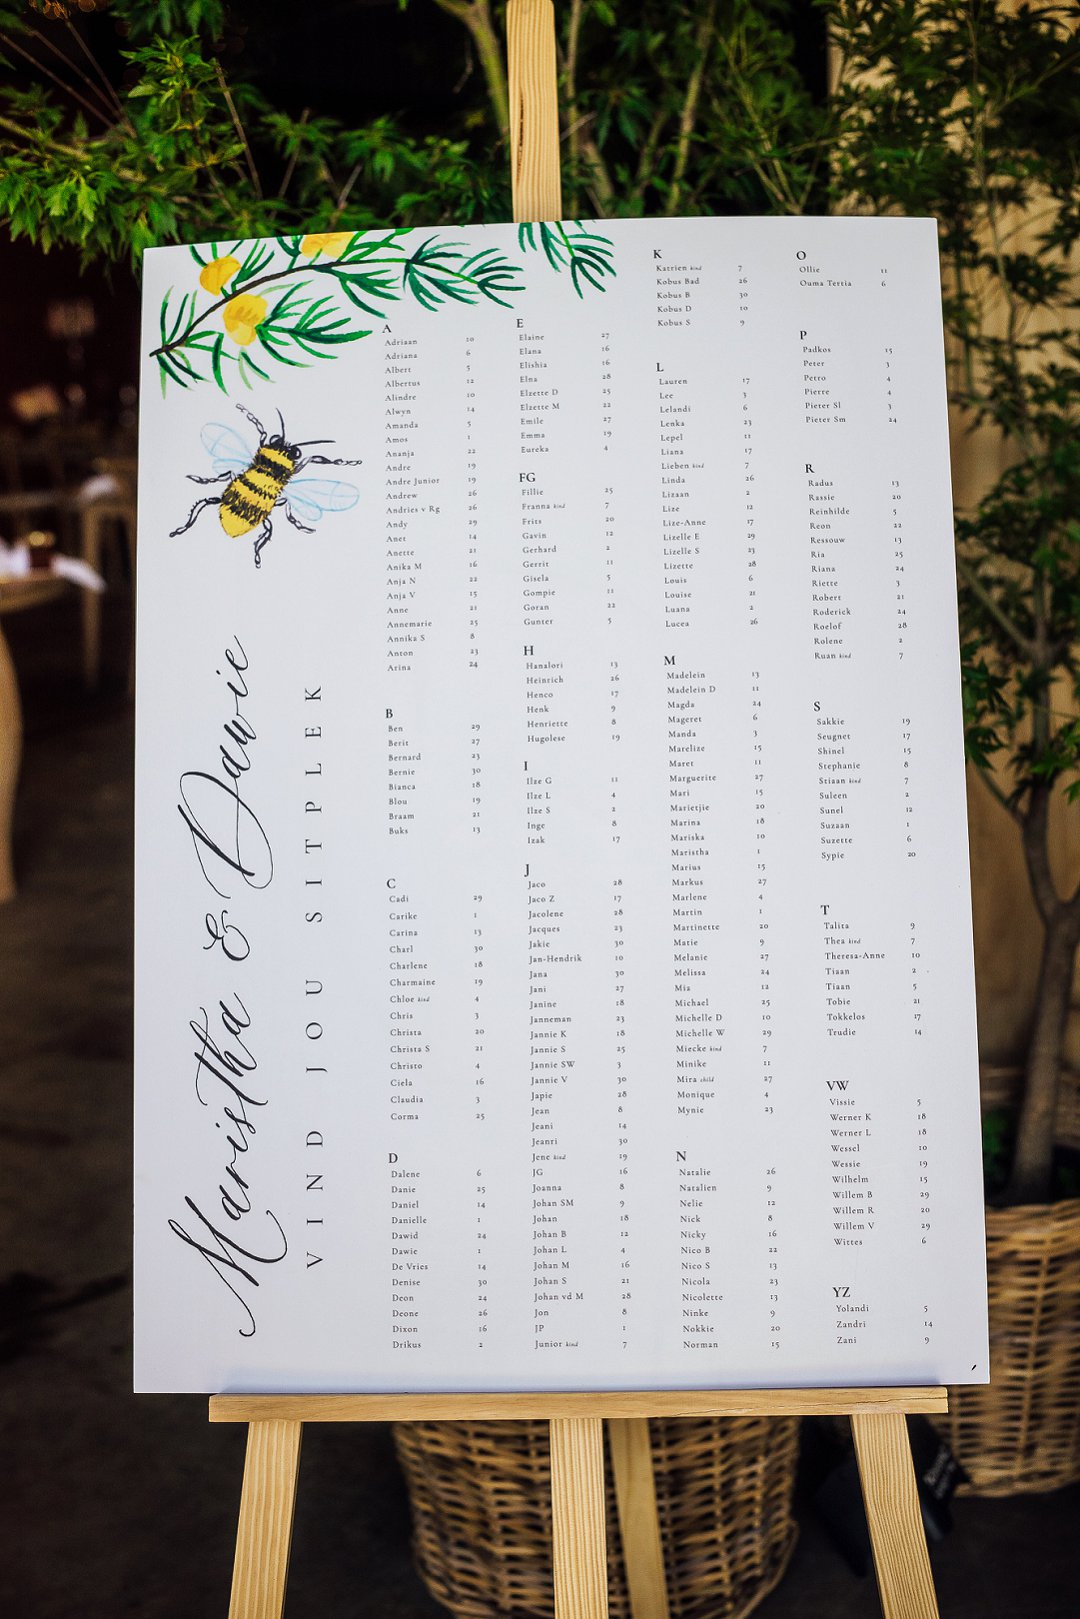 Maristha & Dawie
VIND JOU SITPLEK
A
Adriaan 10
Adriana 6
Albert 5
Albertus 12
Alindre 10
Alwyn 14
Amanda 5
Amos 1
Ananja 22
Andre 19
Andre Junior 19
Andrew 26
Andries v Rg 26
Andy 29
Anet 14
Anette 21
Anika M 16
Anja N 22
Anja V 15
Anne 21
Annemarie 25
Annika S 8
Anton 23
Arina 24
B
Ben 29
Berit 27
Bernard 23
Bernie 30
Bianca 18
Blou 19
Braam 21
Buks 13
C
Cadi 29
Carike 1
Carina 13
Charl 30
Charlene 18
Charmaine 19
Chloe kind 4
Chris 3
Christa 20
Christa S 21
Christo 4
Ciela 16
Claudia 3
Corma 25
D
Dalene 6
Danie 25
Daniel 14
Danielle 1
Dawid 24
Dawie 1
De Vries 14
Denise 30
Deon 24
Deone 26
Dixon 16
Drikus 2
E
Elaine 27
Elana 16
Elishia 16
Elna 28
Elzette D 25
Elzette M 22
Emile 27
Emma 19
Eureka 4
FG
Fillie 25
Franna kind 7
Frits 20
Gavin 12
Gerhard 2
Gerrit 11
Gisela 5
Gompie 11
Goran 22
Gunter 5
H
Hanalori 13
Heinrich 26
Henco 17
Henk 9
Henriette 8
Hugolese 19
I
Ilze G 11
Ilze L 4
Ilze S 2
Inge 8
Izak 17
J
Jaco 28
Jaco Z 17
Jacolene 28
Jacques 23
Jakie 30
Jan-Hendrik 10
Jana 30
Jani 27
Janine 18
Janneman 23
Jannie K 18
Jannie S 25
Jannie SW 3
Jannie V 30
Japie 28
Jean 8
Jeani 14
Jeanri 30
Jene kind 19
JG 16
Joanna 8
Johan SM 9
Johan 18
Johan B 12
Johan L 4
Johan M 16
Johan S 21
Johan vd M 28
Jon 8
JP 1
Junior kind 7
K
Katrien kind 7
Kobus Bad 26
Kobus B 30
Kobus D 10
Kobus S 9
L
Lauren 17
Lee 3
Lelandi 6
Lenka 23
Lepel 11
Liana 17
Lieben kind 7
Linda 26
Lizaan 2
Lize 12
Lize-Anne 17
Lizelle E 29
Lizelle S 23
Lizette 28
Louis 6
Louise 21
Luana 2
Lucea 26
M
Madelein 13
Madelein D 11
Magda 24
Mageret 6
Manda 3
Marelize 15
Maret 11
Marguerite 27
Mari 15
Marietjie 20
Marina 18
Mariska 10
Maristha 1
Marius 15
Markus 27
Marlene 4
Martin 1
Martinette 20
Matie 9
Melanie 27
Melissa 24
Mia 12
Michael 25
Michelle D 10
Michelle W 29
Miecke kind 7
Minike 11
Mira child 27
Monique 4
Mynie 23
N
Natalie 26
Natalien 9
Nelie 12
Nick 8
Nicky 16
Nico B 22
Nico S 13
Nicola 23
Nicolette 13
Ninke 9
Nokkie 20
Norman 15
O
Ollie 11
Ouma Tertia 6
P
Padkos 15
Peter 3
Petro 4
Pierre 4
Pieter Sl 3
Pieter Sm 24
R
Radus 13
Rassie 20
Reinhilde 5
Reon 22
Ressouw 13
Ria 25
Riana 24
Riette 3
Robert 21
Roderick 24
Roelof 28
Rolene 2
Ruan kind 7
S
Sakkie 19
Seugnet 17
Shinel 15
Stephanie 8
Stiaan kind 7
Suleen 2
Sunel 12
Suzaan 1
Suzette 6
Sypie 20
T
Talita 9
Thea kind 7
Theresa-Anne 10
Tiaan 2
Tiaan 5
Tobie 21
Tokkelos 17
Trudie 14
VW
Vissie 5
Werner K 18
Werner L 18
Wessel 10
Wessie 19
Wilhelm 15
Willem B 29
Willem R 20
Willem V 29
Wittes 6
YZ
Yolandi 5
Zandri 14
Zani 9